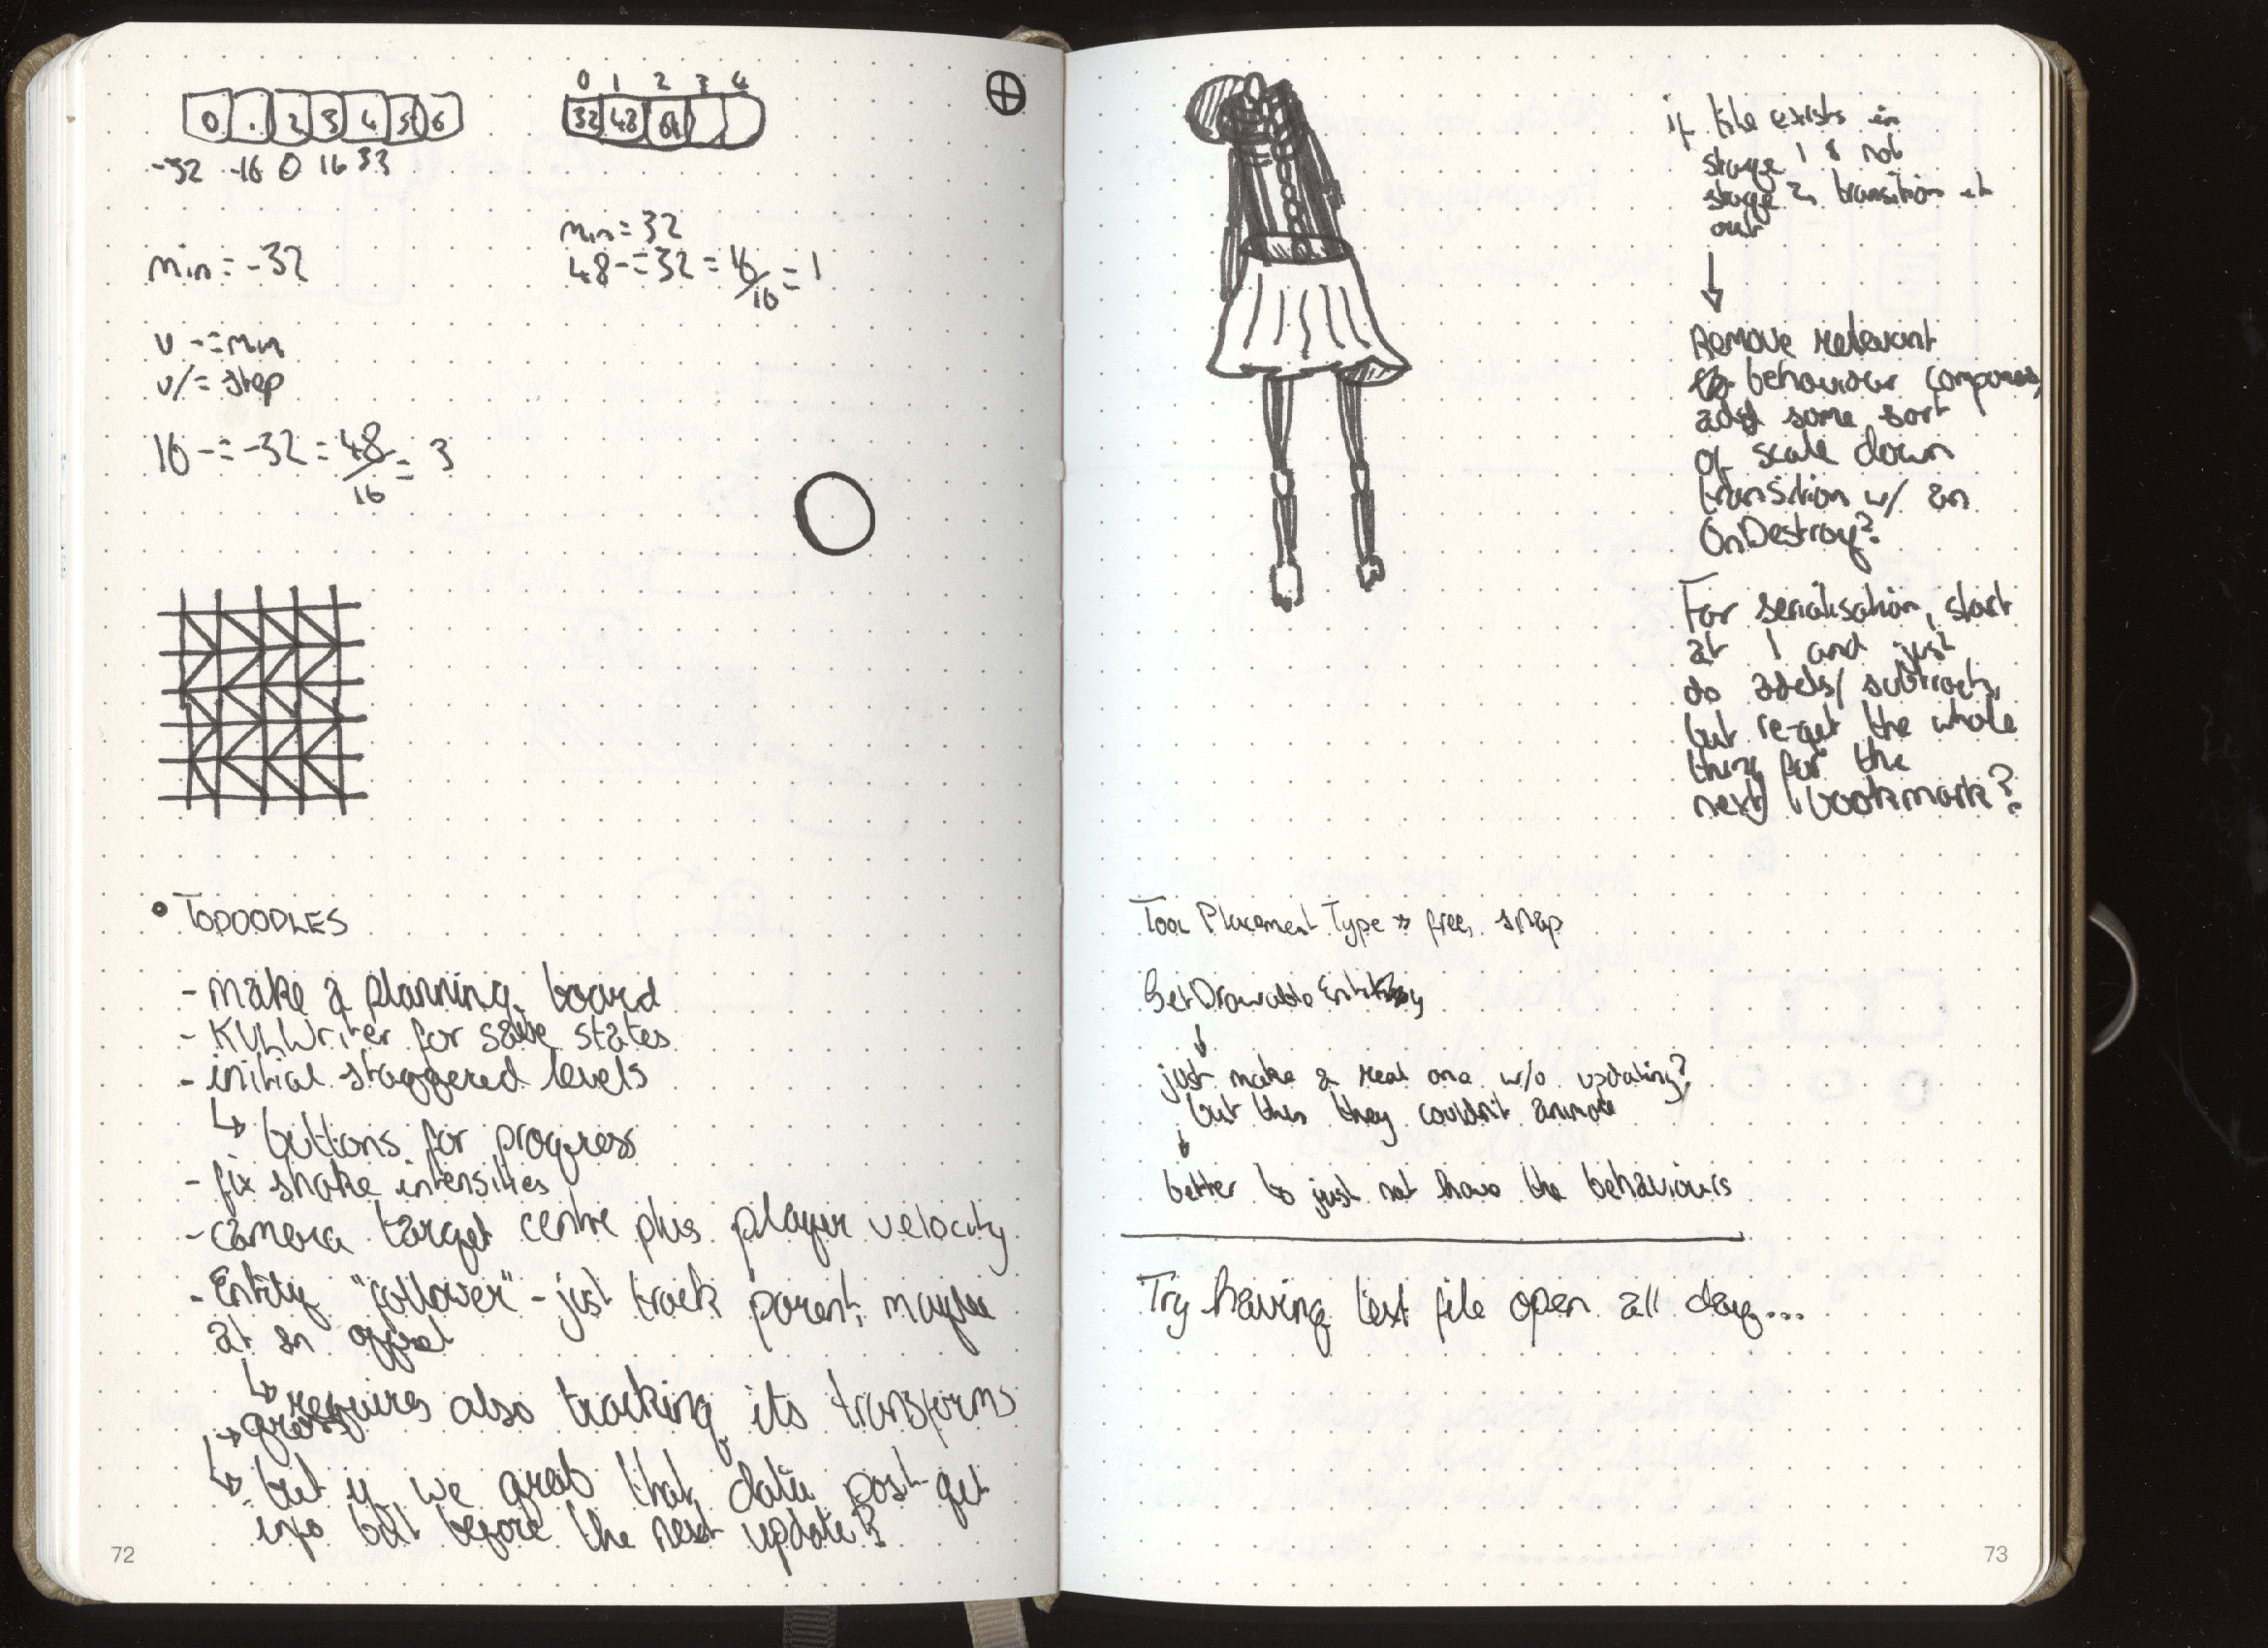 0 . 2 3 4 5 6
-32 -16 0 16 33
min = -32
v -= min
v /= step
16 -= -32 = 48/16 = 3
0 1 2 3 4
32 48 64
min = 32
48 -= 32 = 16/16 = 1
• TODOODLES
- make a planning board
- KVLWriter for save states
- initial staggered levels
↳ buttons for progress
- fix shake intensities
- camera target centre plus player velocity
- Entity "follower" - just track parent, maybe
at an offset
↳ requires also tracking its transforms
→ gross
↳ but if we grab that data post get
info but before the next update?
72
if tile exists in
stage 1 & not
stage 2, transition it
out
↓
Remove relevant
behaviour
add some sort
of scale down
transition w/ an
OnDestroy?
For serialisation, start
at 1 and just
do adds/subtracts,
but re-get the whole
thing for the
next bookmark?
Tool Placement Type » free, snap
GetDrawableEntity
↓
just make a real one w/o updating?
but then they couldn't animate
↓
better to just not have the behaviours
Try having text file open all day...
73